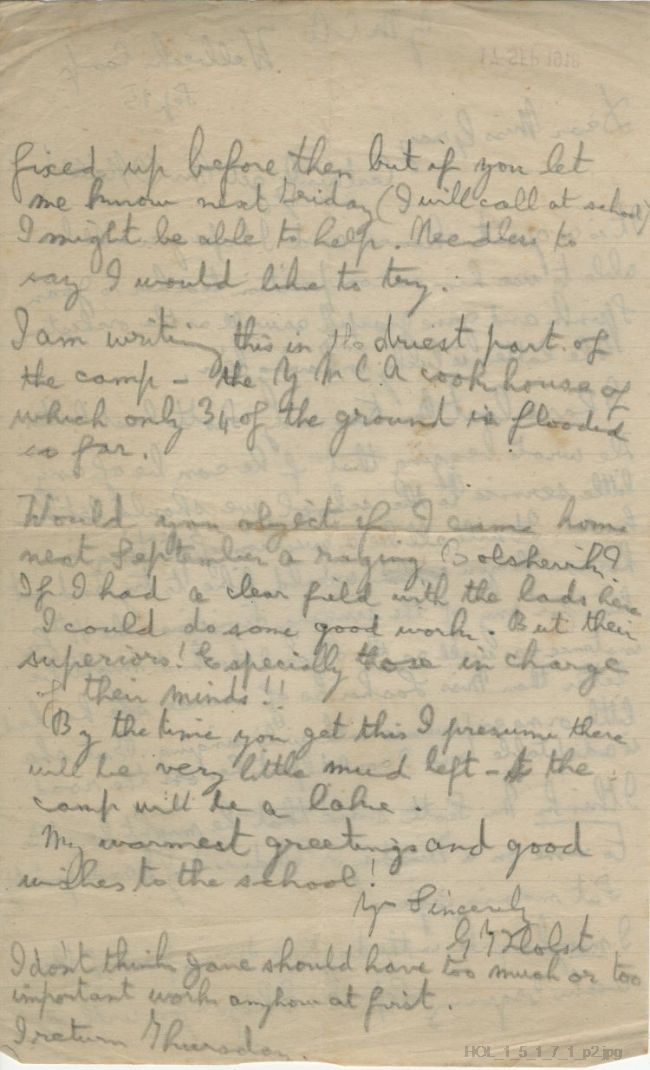 fixed up before then but if you let
me know next Friday (I will call at school)
I might be able to help. Needless to
say I would like to try.
I am writing this in the driest part of
the camp - the Y M C A cookhouse of
which only 3/4 of the ground is flooded
so far.
Would you object if I came home
next September a raging Bolshevik?
If I had a clear field with the lads here
I could do some good work. But their
superiors! Especially those in charge
of their minds!!
By the time you get this I presume there
will be very little mud left - the
camp will be a lake.
My warmest greetings and good
wishes to the school!
Yrs Sincerely
G Holst
I don't think Jane should have too much or too
important work anyhow at first.
I return Thursday.
HOL_1_5_1_7_1_p2jpg